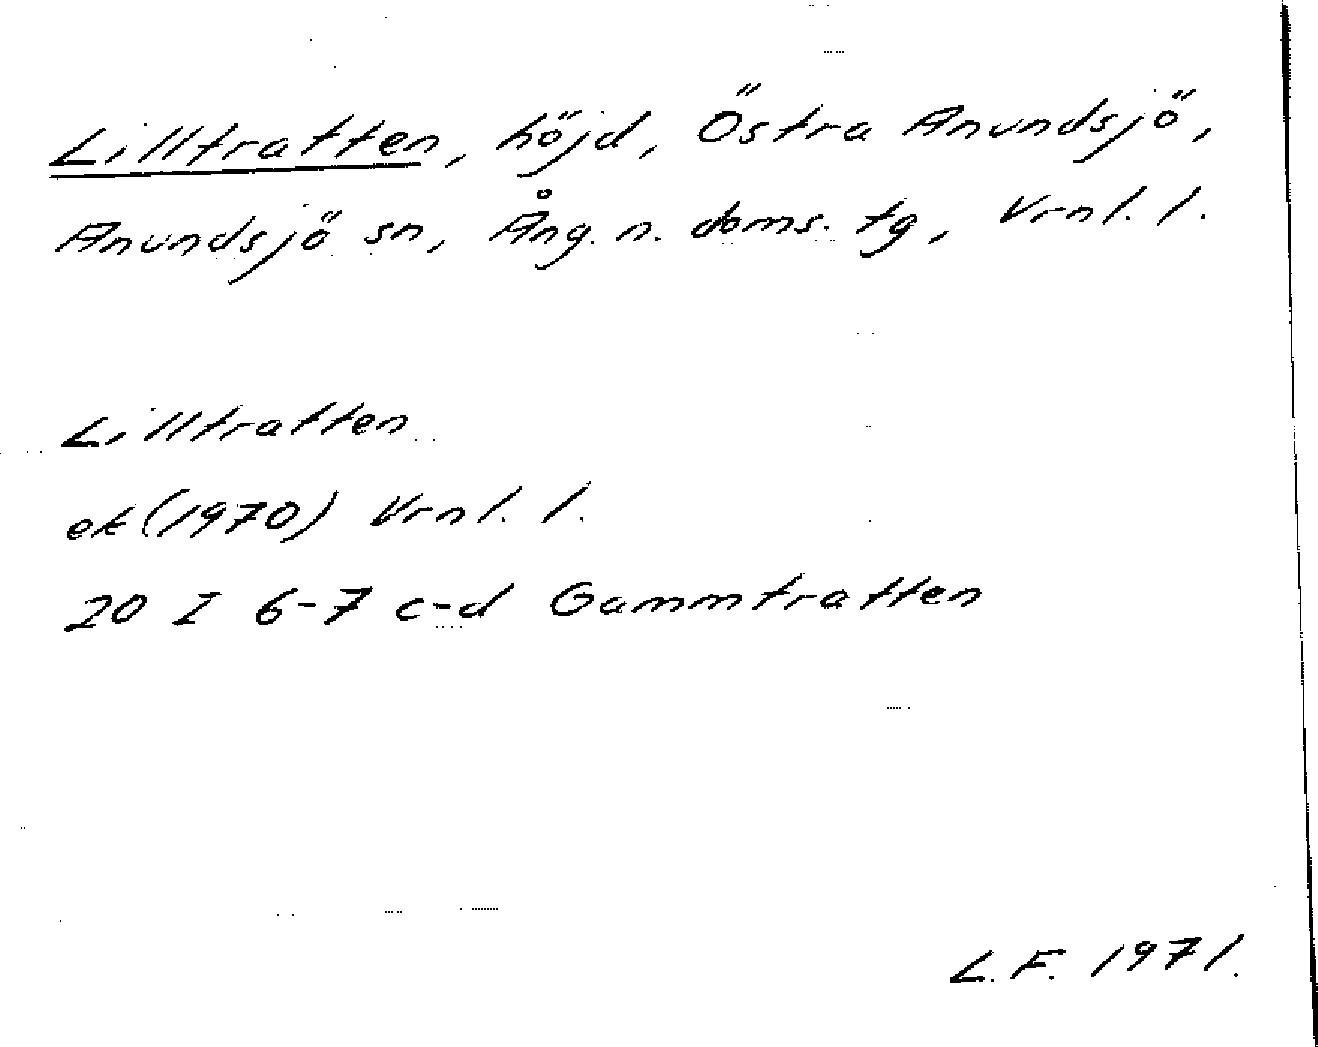 Lilltratten, höjd, Östra Anundsjö,
Anundsjö sn, Ång. n. doms. tg, Vrnl. l.
Lilltratten
ek (1970) Vrnl. l.
20 I 6-7 c-d Gammtratten
L.F. 1971.